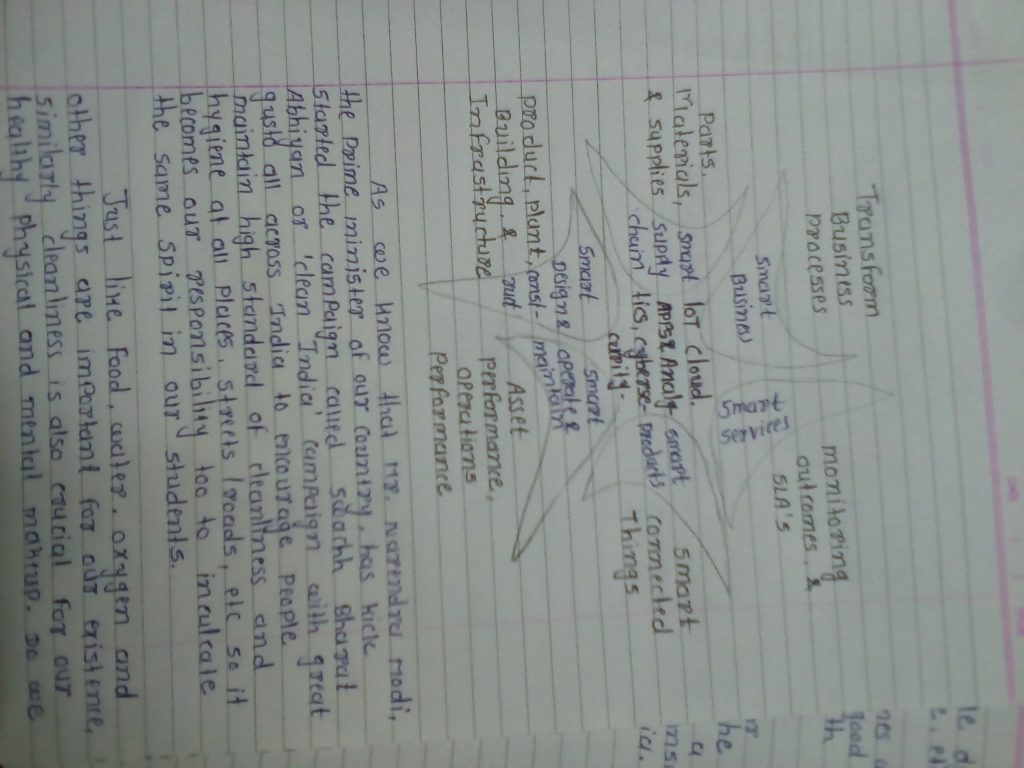 Transform
Business
processes
monitoring
outcomes, &
SLA's
smart
Busines
smart
service
Parts.
Materials,
& supplies
smart
supply
chain
IoT cloud.
tics, cyberse-
curity.
smart
products
smart
connected
Things
smart
design &
smart
operate &
maintain
product, plant, const-
Building, &
Infrastructure
Asset
preformance,
operations
performance
As we know that mr. narendra modi,
the prime minister of our country. has kick
started the campaign called swachh Bharat
Abhiyan or 'clean India' campaign with great
gusto all across India to encourage people
maintain high standerd of cleanliness and
hygiene at all places, streets / roads, etc so it
becomes our responsibility too to inculcate
the same spirit in our students.
Just like Food, water, oxygen and
other things are important for our existence,
similarly cleanliness is also crucial for our
healthy physical and mental makeup. so we